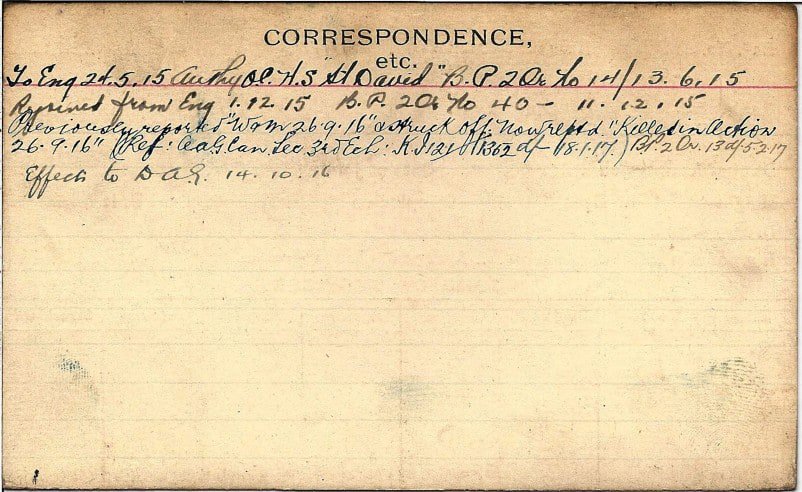 CORRESPONDENCE,
etc.
To Eng 24.5.15 Authy O.C. H.S "St David" B.P. 2 Or No 14/13.6.15
Rejoined from Eng 1.12.15 B.P. 2 Or No 40 - 11.12.15
Previously reported "W & M 26.9.16" & struck off; Now reptd. "Killed in Action
26.9.16" (Ref: A.A.G. Can. Sec 3rd Ech: 1362 d/- 18.1.17.) B.P. 2 Or. 13 d/5.2.17
Effects to D.A.G. 14.10.16